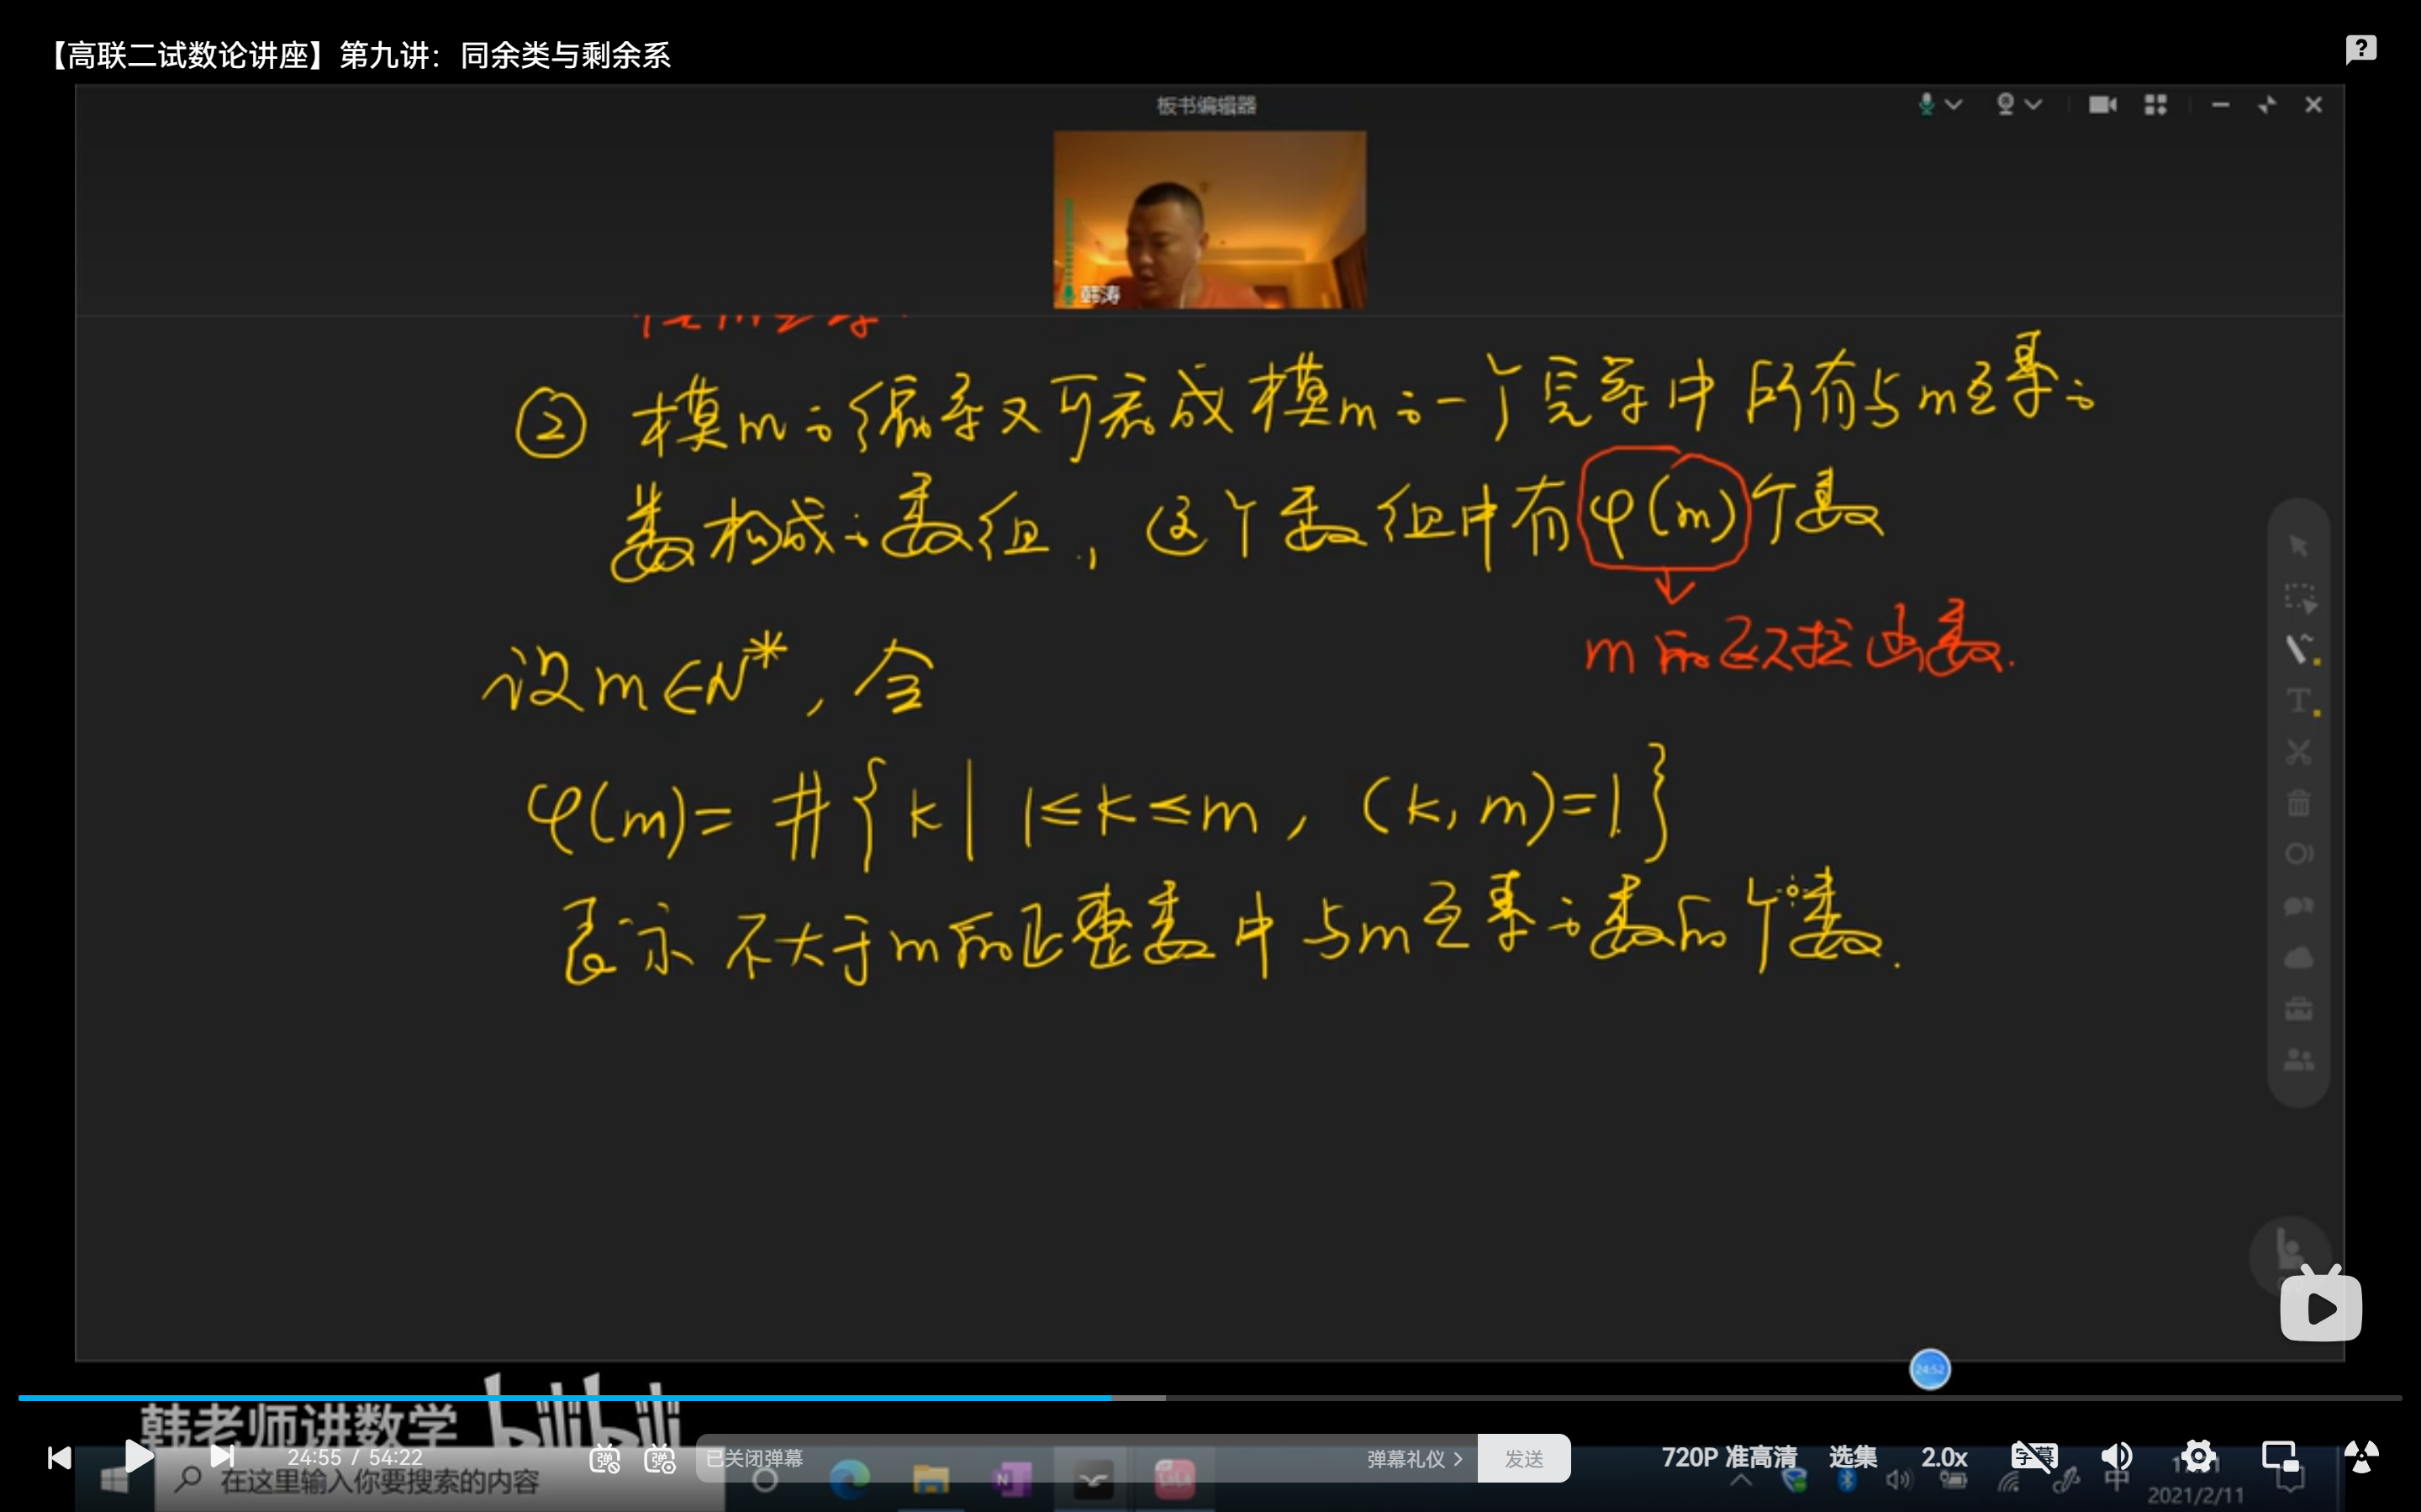 【高联二试数论讲座】第九讲：同余类与剩余系
板书编辑器
韩涛
② 模m的缩系又可看成模m的一个完系中所有与m互素的
数构成的数组，这个数组中有φ(m)个数
m的欧拉函数.
设m∈N*，令
φ(m)= #{k| 1≤k≤m，(k,m)=1}
表示不大于m的正整数中与m互素的数的个数.
24:52
韩老师讲数学 bilibili
24:55 / 54:22
弹
弹
已关闭弹幕
弹幕礼仪 >
发送
720P 准高清
选集
2.0x
字幕
在这里输入你要搜索的内容
中
2021/2/11